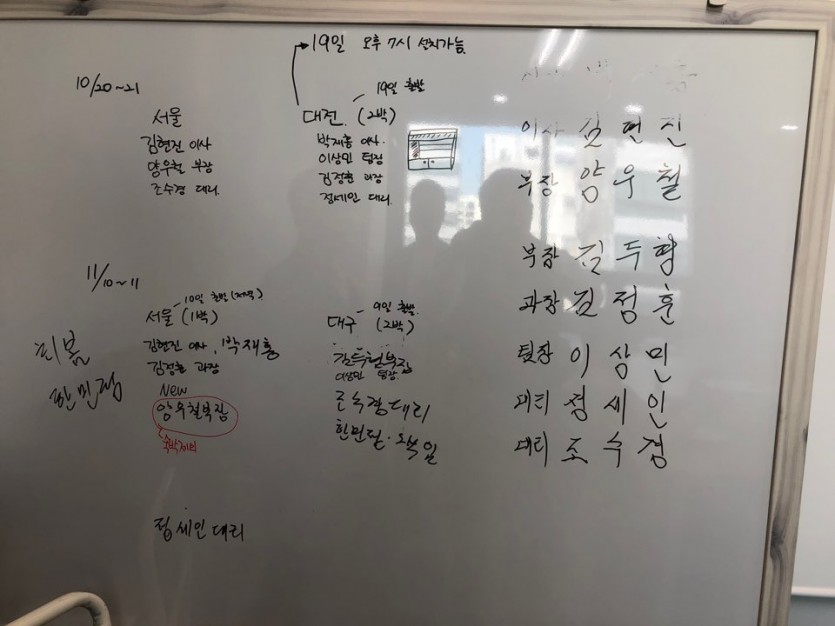 19일 오후 7시 설치가능
10/20~21
서울
김현진 이사
양우철 부장
조수경 대리
19일 출발
대전 (2박)
박재홍 이사
이상민 팀장
김정훈 과장
정세인 대리
이사 김현진
부장 양우철
부장 김두형
과장 김정훈
팀장 이상민
대리 정세인
대리 조수경
11/10~11
10일 출발(저녁)
서울 (1박)
김현진 이사, 박재홍
김정훈 과장
New
양우철부장
숙박제외
정세인 대리
9일 출발
대구 (2박)
이상민 팀장
조수경대리